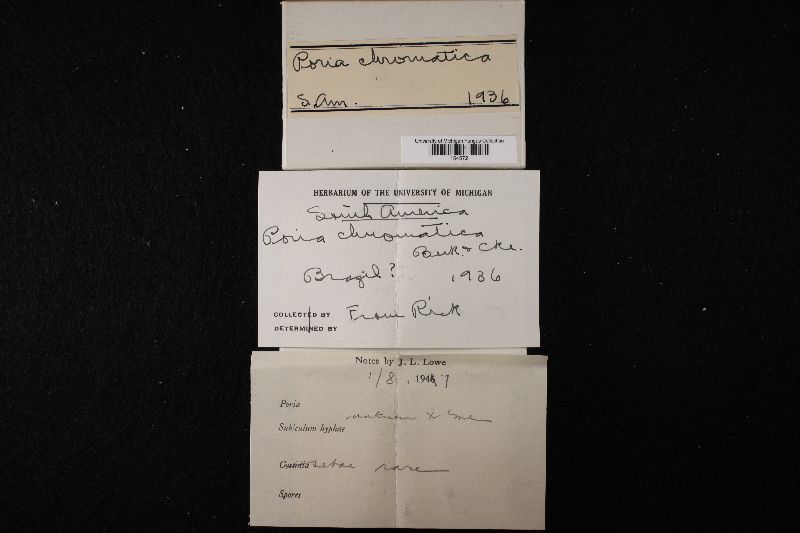 Poria chromatica
S. Am. 1936
University of Michigan Fungus Collection
154572
HERBARIUM OF THE UNIVERSITY OF MICHIGAN
South America
Poria chromatica
Berk. & Cke.
Brazil? 1936
COLLECTED BY From Rick
DETERMINED BY
Notes by J. L. Lowe
1/8, 1947
Poria
unknown to me
Subiculum hyphae
Cystidia setae rare
Spores